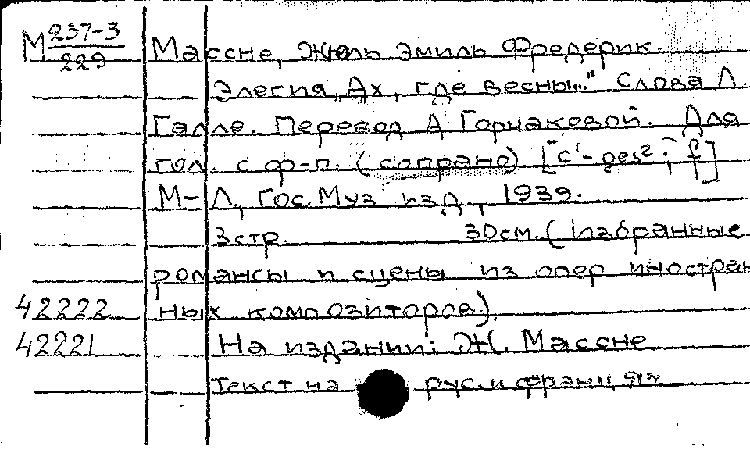 М 237-3
229
Массне, Жюль Эмиль Фредерик.
Элегия „Ах, где весны..." Слова Л.
Галле. Перевод А Горчаковой. Для
гол. с ф-п. (сопрано) ["c'-ges²; f]
М-Л, Гос. Муз изд, 1939.
3стр. 30см. (Избранные
романсы и сцены из опер иностран
42222 ных композиторов).
42221 На издании: Ж. Массне
Текст на рус. и франц. яз